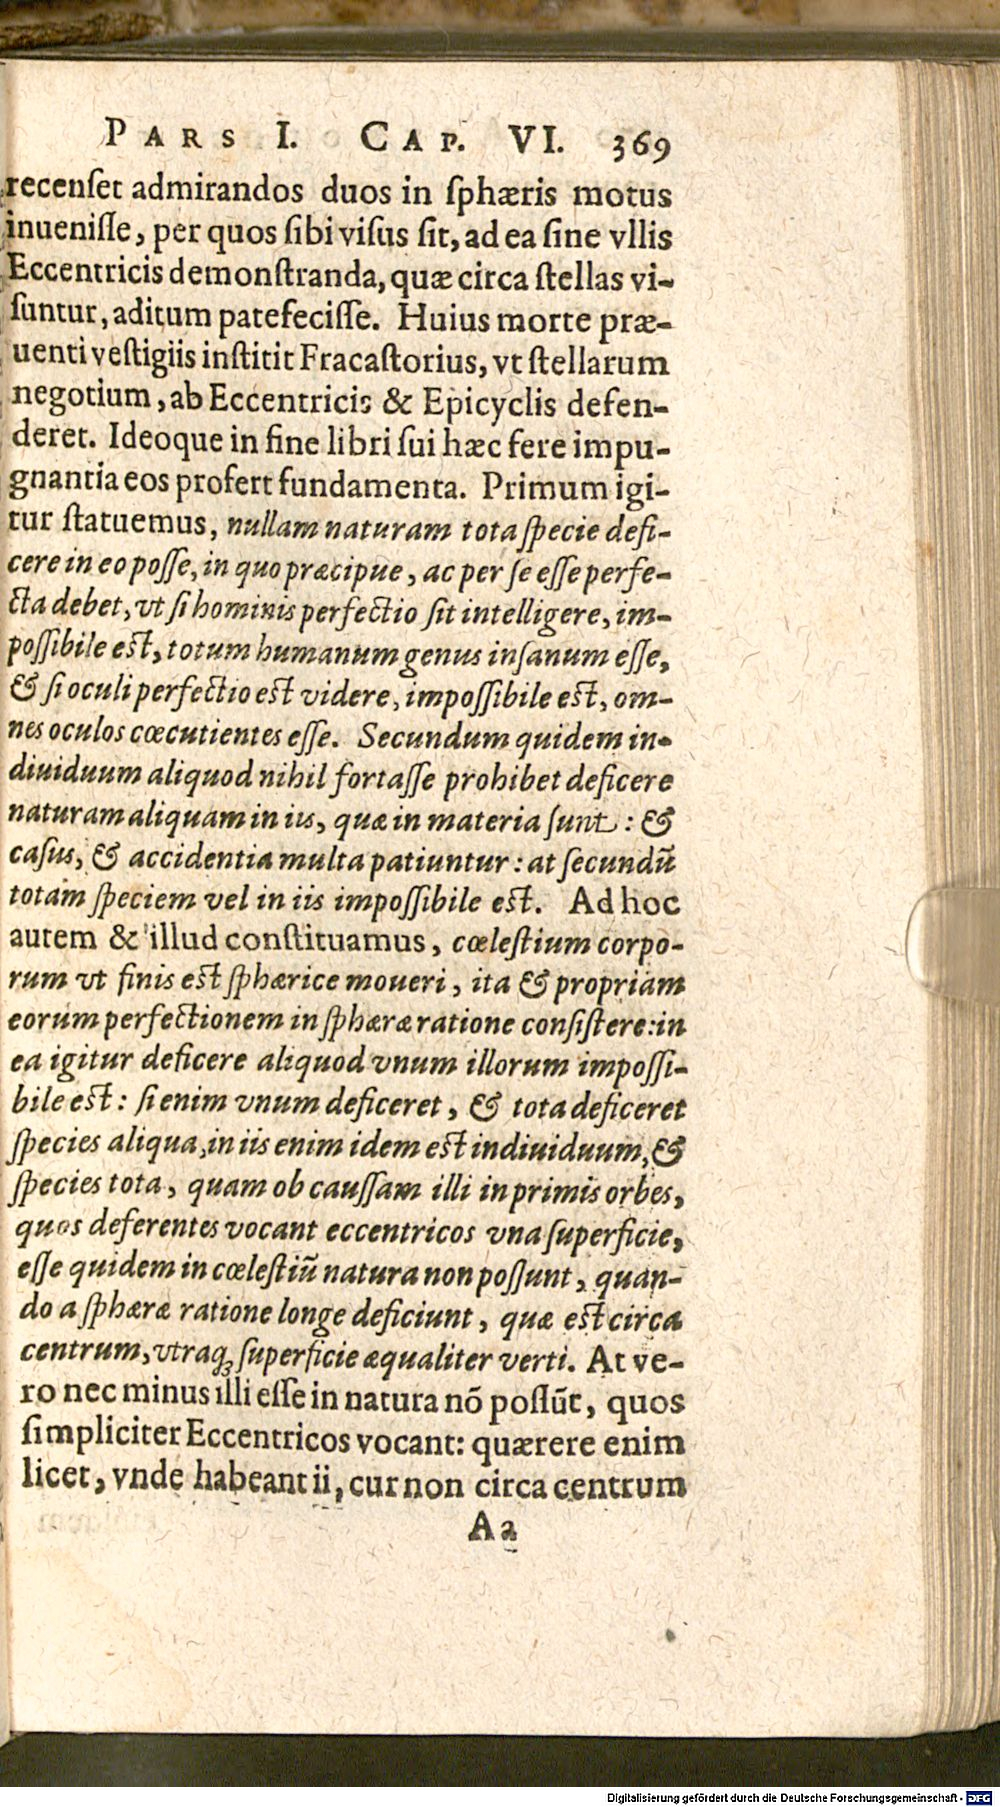 PARS I. CAP. VI. 369
recenſet admirandos duos in ſphæris motus
inueniſſe, per quos ſibi viſus ſit, ad ea ſine vllis
Eccentricis demonſtranda, quæ circa ſtellas vi-
ſuntur, aditum patefeciſſe. Huius morte præ-
uenti veſtigiis inſtitit Fracaſtorius, vt ſtellarum
negotium, ab Eccentricis & Epicyclis defen-
deret. Ideoque in fine libri ſui hæc fere impu-
gnantia eos profert fundamenta. Primum igi-
tur ſtatuemus, nullam naturam tota ſpecie defi-
cere in eo poſſe, in quo præcipue, ac per ſe eſſe perfe-
cta debet, vt ſi hominis perfectio ſit intelligere, im-
poſſibile eſt, totum humanum genus inſanum eſſe,
& ſi oculi perfectio eſt videre, impoſſibile eſt, om-
nes oculos cœcutientes eſſe. Secundum quidem in-
diuiduum aliquod nihil fortaſſe prohibet deficere
naturam aliquam in iis, quæ in materia ſunt: &
caſus, & accidentia multa patiuntur: at ſecundũ
totam ſpeciem vel in iis impoſſibile eſt. Ad hoc
autem & illud conſtituamus, cœleſtium corpo-
rum vt finis eſt ſphærice moueri, ita & propriam
eorum perfectionem in ſphæræ ratione conſiſtere: in
ea igitur deficere aliquod vnum illorum impoſſi-
bile eſt: ſi enim vnum deficeret, & tota deficeret
ſpecies aliqua, in iis enim idem eſt indiuiduum, &
ſpecies tota, quam ob cauſſam illi in primis orbes,
quos deferentes vocant eccentricos vna ſuperficie,
eſſe quidem in cœleſtiũ natura non poſſunt, quan-
do a ſphæræ ratione longe deficiunt, quæ eſt circa
centrum, vtraq; ſuperficie æqualiter verti. At ve-
ro nec minus illi eſſe in natura nõ poſſũt, quos
ſimpliciter Eccentricos vocant: quærere enim
licet, vnde habeant ii, cur non circa centrum
Aa
Digitalisierung gefördert durch die Deutsche Forschungsgemeinschaft - DFG